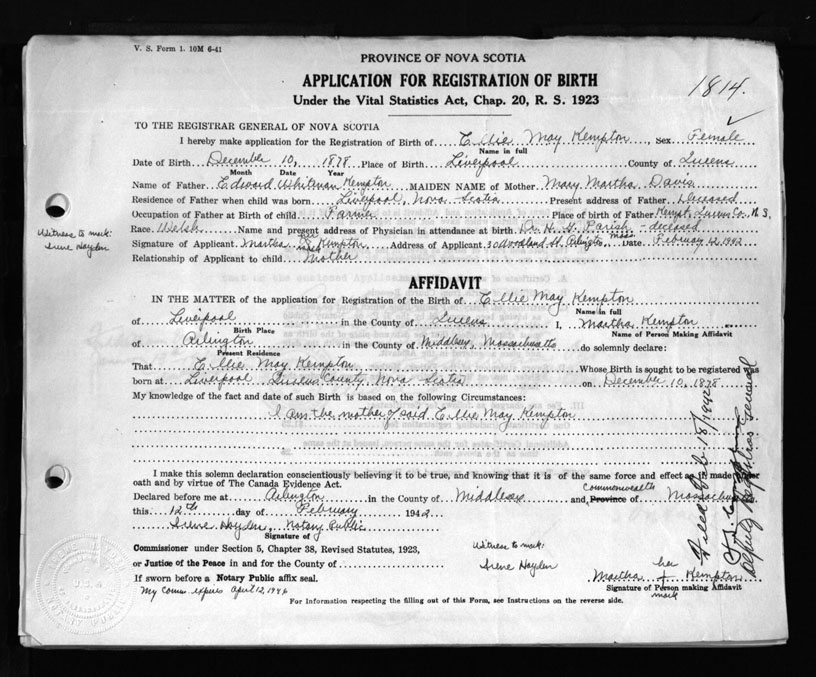 V. S. Form 1. 10M 6-41
PROVINCE OF NOVA SCOTIA
APPLICATION FOR REGISTRATION OF BIRTH
1814.
Under the Vital Statistics Act, Chap. 20, R. S. 1923
TO THE REGISTRAR GENERAL OF NOVA SCOTIA
I hereby make application for the Registration of Birth of Ellie May Kempton, Sex Female
Name in full
Date of Birth December 10, 1878 Place of Birth Liverpool County of Queens
Month Date Year
Name of Father Edward Whitman Kempton MAIDEN NAME of Mother Mary Martha Davis
Residence of Father when child was born Liverpool Nova Scotia Present address of Father Deceased
Occupation of Father at Birth of child Farmer Place of birth of Father Kempt, Queens Co. N. S.
Witness to mark: Irene Hayden
Race Welsh Name and present address of Physician in attendance at birth Dr. H. Parish - deceased
Signature of Applicant Martha her mark Kempton Address of Applicant Woodland St. Arlington, Mass Date February 12, 1942
Relationship of Applicant to child Mother
AFFIDAVIT
IN THE MATTER of the application for Registration of the Birth of Ellie May Kempton
Name in full
of Liverpool in the County of Queens I, Martha Kempton
Birth Place Name of Person Making Affidavit
of Arlington in the County of Middlesex, Massachusetts do solemnly declare:
Present Residence
That Ellie May Kempton Whose Birth is sought to be registered was
born at Liverpool Queens County, Nova Scotia on December 10, 1878
My knowledge of the fact and date of such Birth is based on the following Circumstances:
I am the mother of said Ellie May Kempton
I make this solemn declaration conscientiously believing it to be true, and knowing that it is of the same force and effect as if made under
oath and by virtue of The Canada Evidence Act.
Declared before me at Arlington in the County of Middlesex and Commonwealth Province of Massachusetts
this 12th day of February 1942
Irene Hayden, Notary Public
Signature of
Commissioner under Section 5, Chapter 38, Revised Statutes, 1923,
or Justice of the Peace in and for the County of
If sworn before a Notary Public affix seal.
My Comm. expires April 12, 1946
Witness to mark:
Irene Hayden
Martha her + mark Kempton
Signature of Person making Affidavit
For Information respecting the filling out of this Form, see Instructions on the reverse side.
Filed Feb 18/1942
Deputy Registrar General